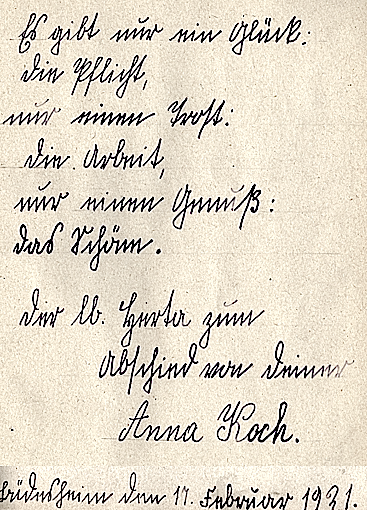 Es gibt nur ein Glück:
die Pflicht,
nur einen Trost:
die Arbeit,
nur einen Genuß:
das Schöne.
Der lb. Herta zum
Abschied von deiner
Anna Koch.
Büdesheim den 17. Februar 1931.